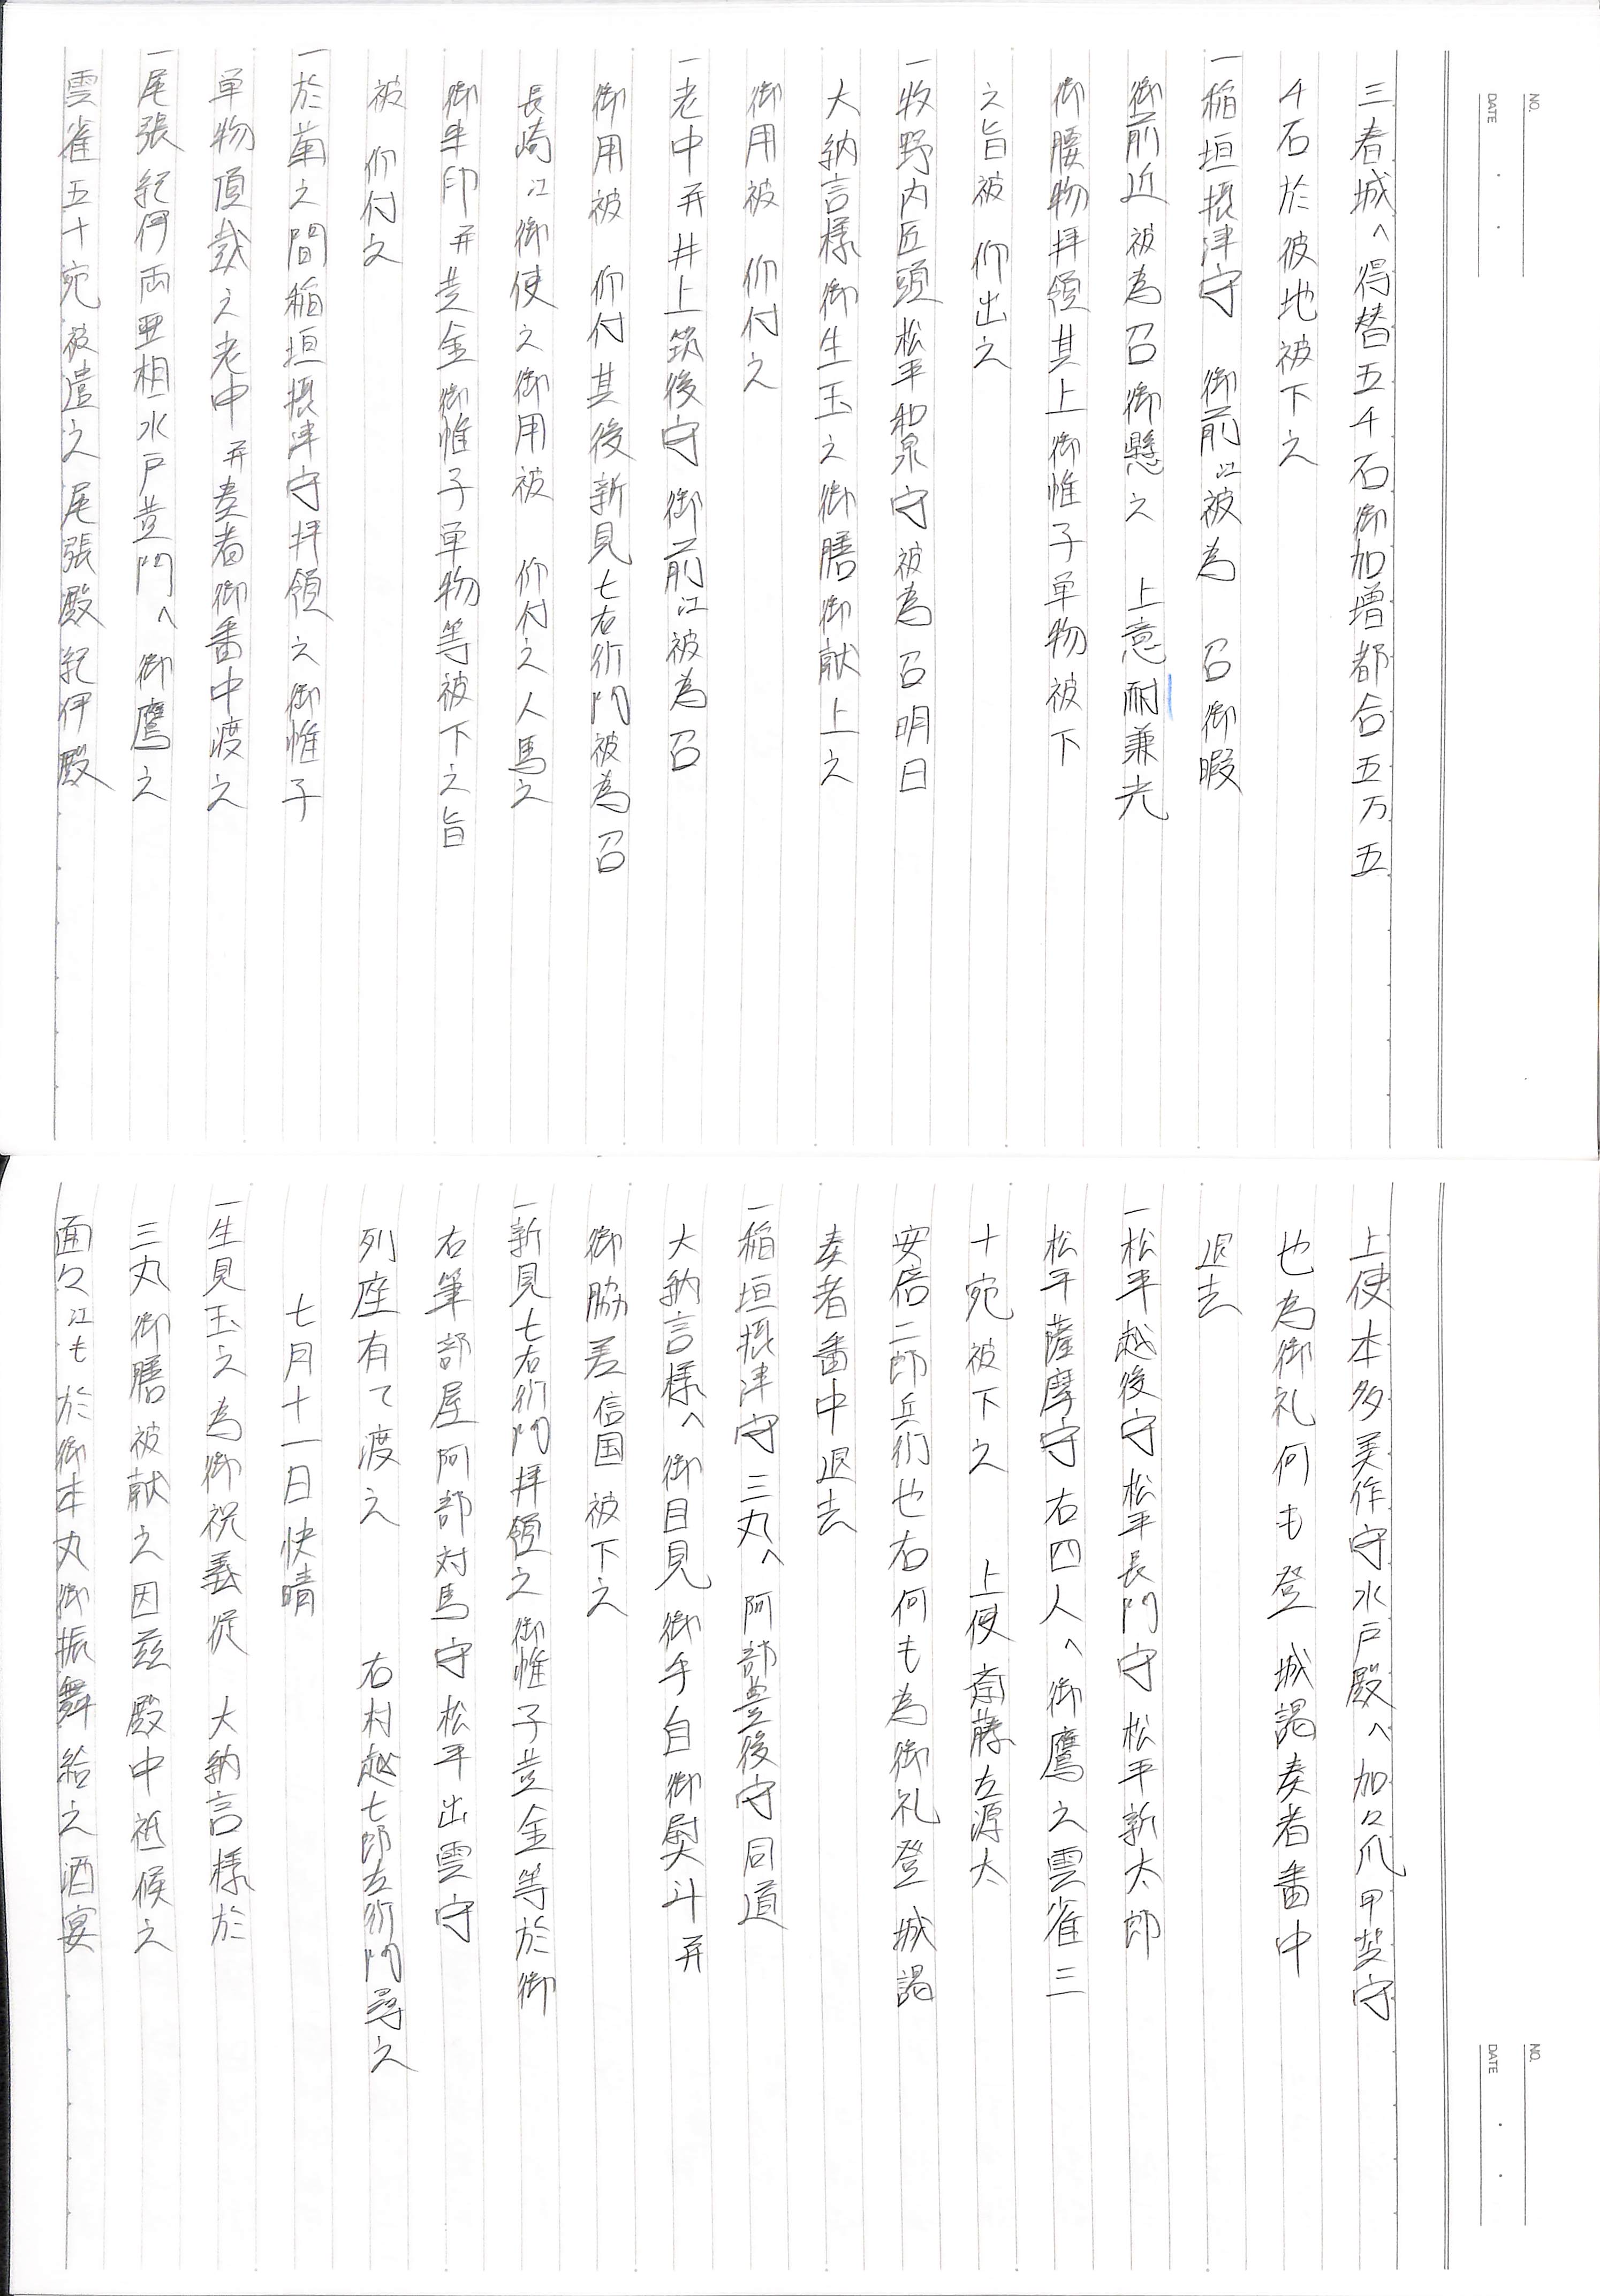 三春城へ得替五千石御加増都合五万五
千石於彼地被下之
一稲垣摂津守　御前江被為　召御暇
御前近被為召御懸之　上意耐兼光
御腰物拝領其上御帷子単物被下
之旨被　仰出之
一牧野内匠頭松平和泉守被為召明日
大納言様御生玉之御膳御献上之
御用被　仰付之
一老中并井上筑後守　御前江被為召
御用被　仰付其後新見七右衛門被為召
長崎江御使之御用被　仰付之人馬之
御朱印并黄金御帷子単物等被下之旨
被　仰付之
一於菊之間稲垣摂津守拝領之御帷子
単物頂戴之老中并奏者御番中渡之
一尾張紀伊両亜相水戸黄門へ御鷹之
雲雀五十宛被遣之尾張殿紀伊殿
上使本多美作守水戸殿へ加々爪甲斐守
也為御礼何も登　城謁奏者番中
退去
一松平越後守松平長門守松平新太郎
松平薩摩守右四人へ御鷹之雲雀三
十宛被下之　上使斎藤左源太
安倍二郎兵衛也右何も為御礼登　城謁
奏者番中退去
一稲垣摂津守三丸へ阿部豊後守同道
大納言様へ御目見御手自御熨斗并
御脇差信国被下之
一新見七右衛門拝領之御帷子黄金等於御
右筆部屋阿部対馬守松平出雲守
列座有て渡之　右村越七郎左衛門尋之
七月十一日快晴
一生見玉之為御祝義従　大納言様於
三丸御膳被献之因茲殿中祗候之
面々江も於御本丸御振舞給之酒宴
NO.
DATE
NO.
DATE